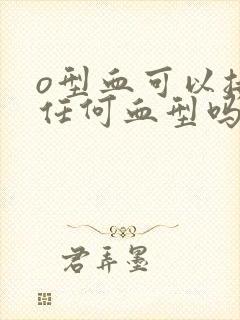 o型血可以接
任何血型吗
君弄墨